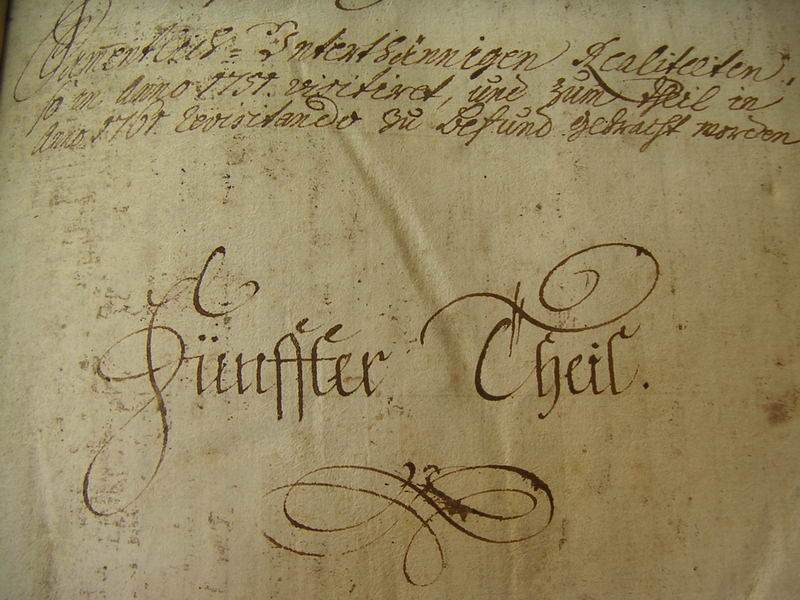 Samentlich-Unterthännigen Realiteten,
so in Anno 1757. visitiret, und zum theil in
Anno 1761. revisitando zu befund gebracht worden
Fünffter Theil.